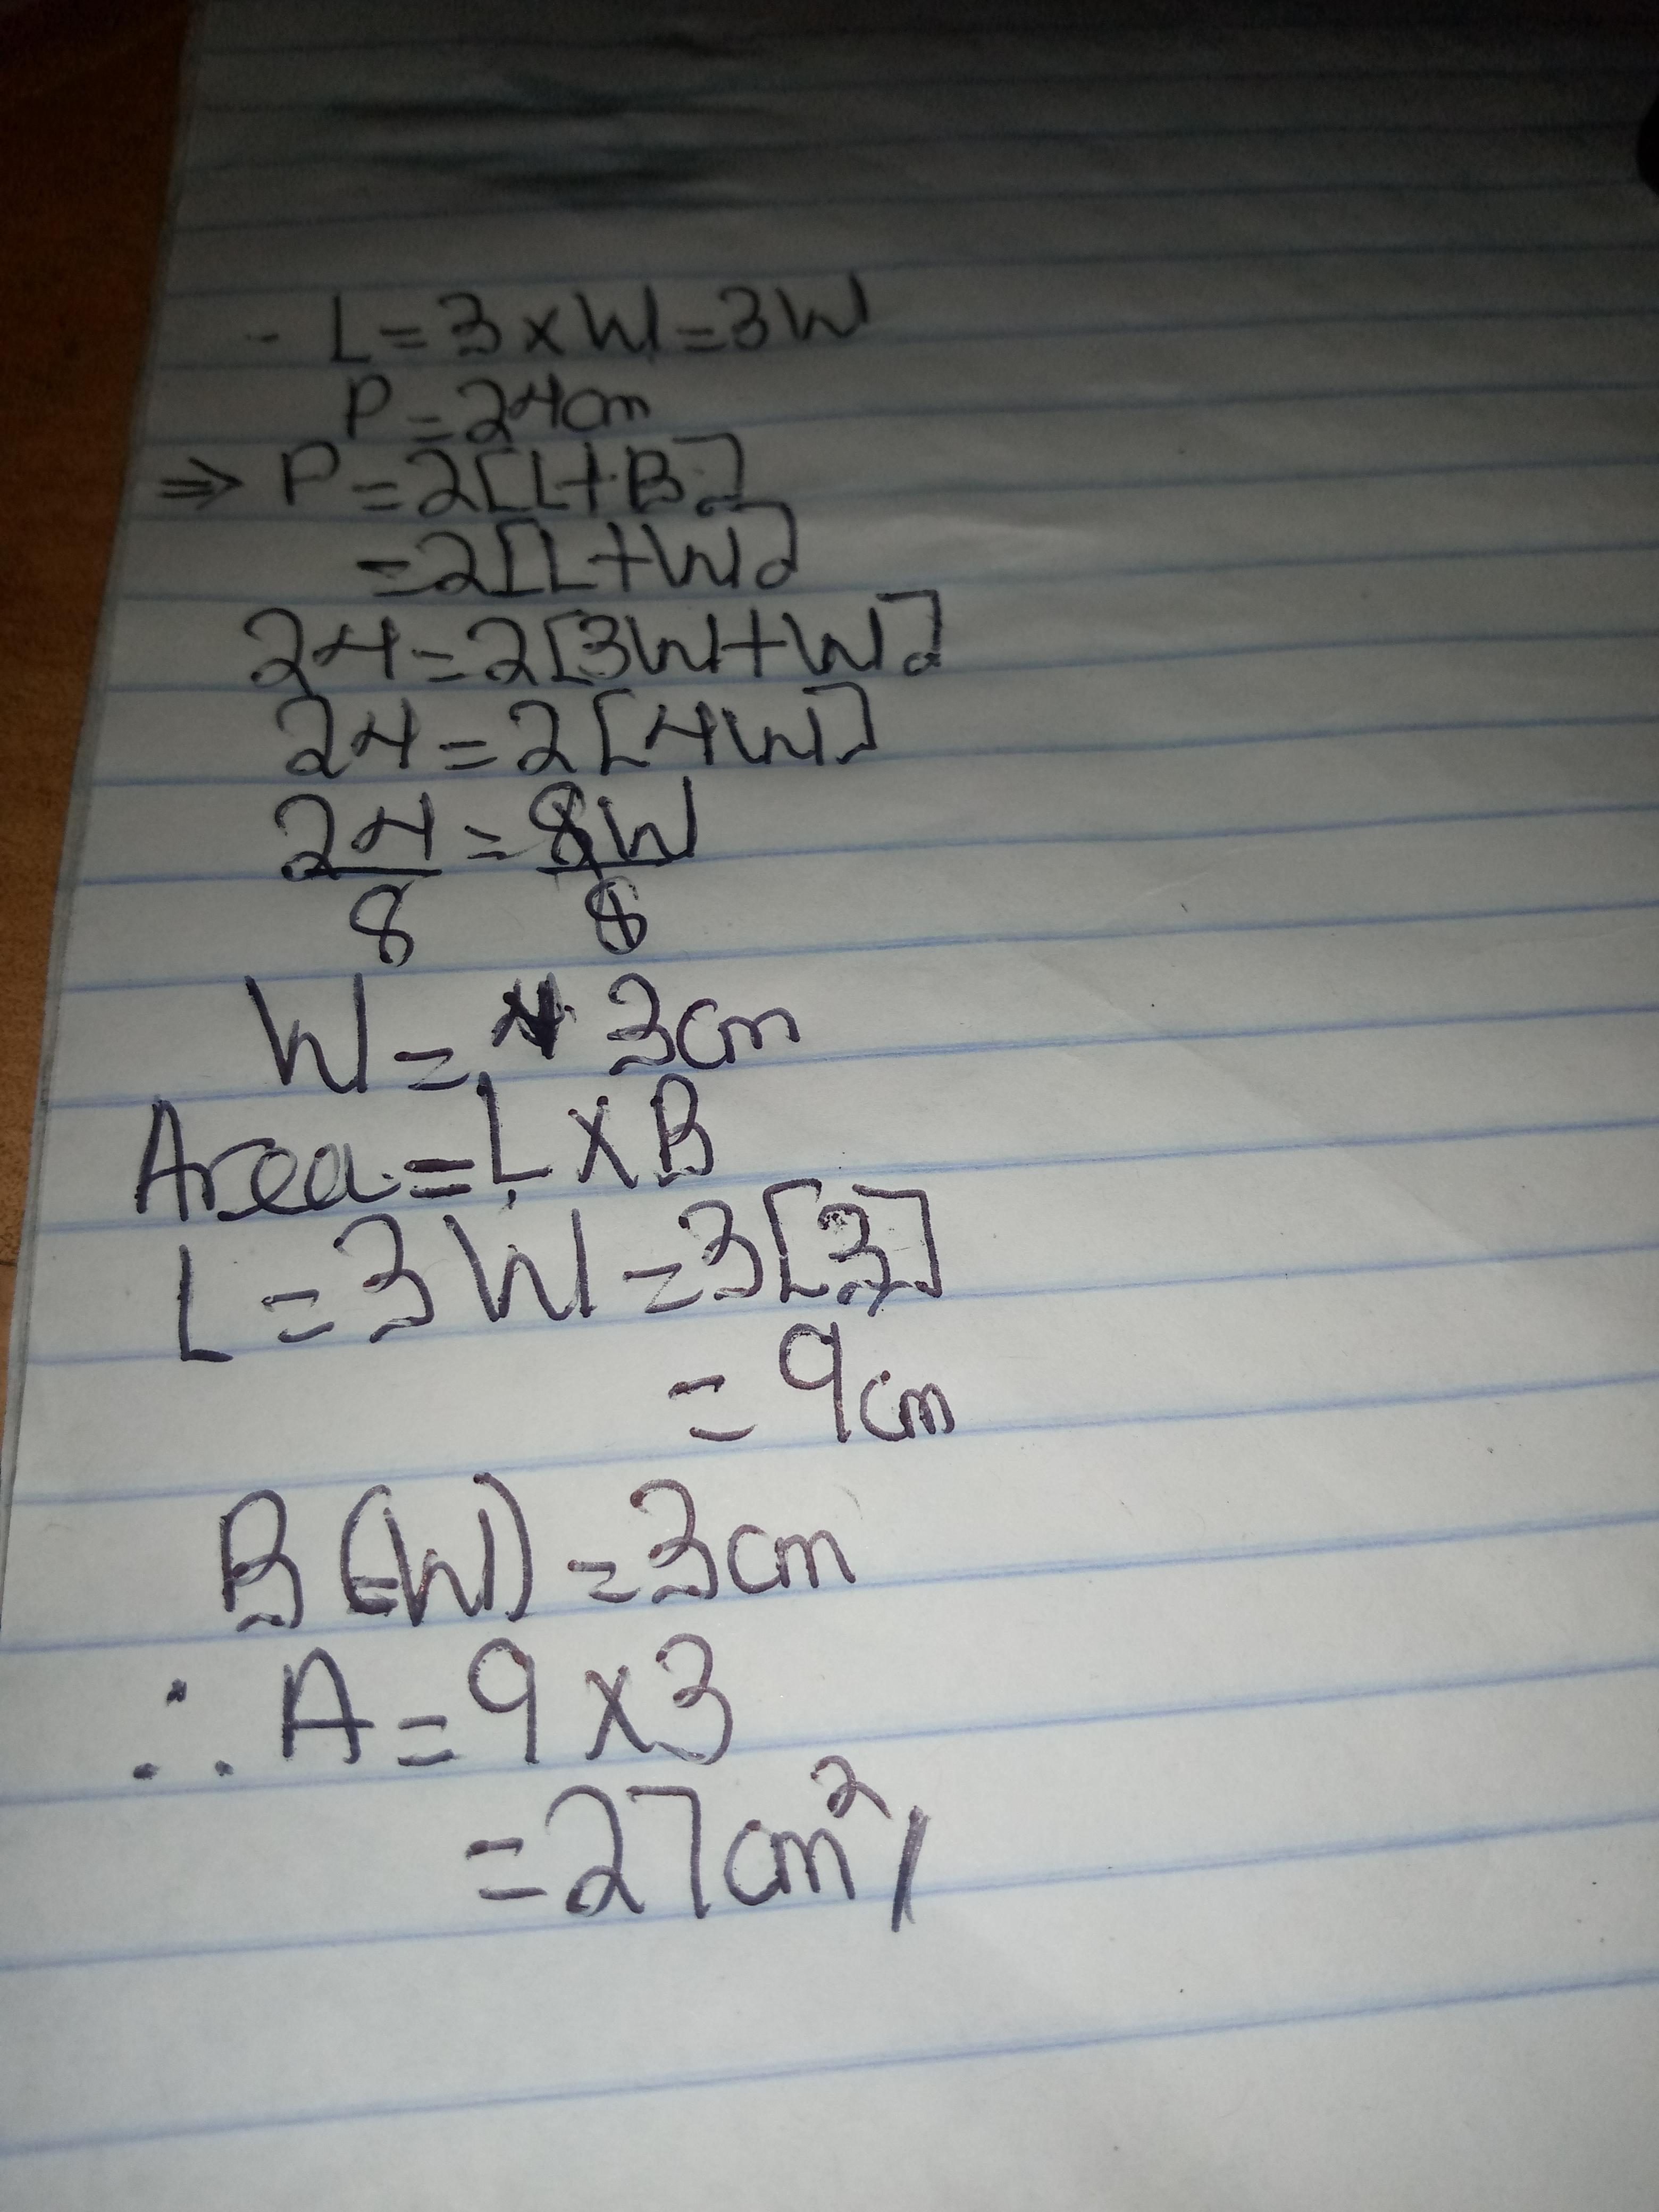 - L = 3 x W = 3W
P = 24cm
⇒ P = 2[L+B]
= 2[L+W]
24 = 2[3W+W]
24 = 2[4W]
24 = 8W
8 8
W = 3cm
Area = L X B
L = 3W = 3[3]
= 9cm
B(=W) = 3cm
∴ A = 9 x 3
= 27cm²/